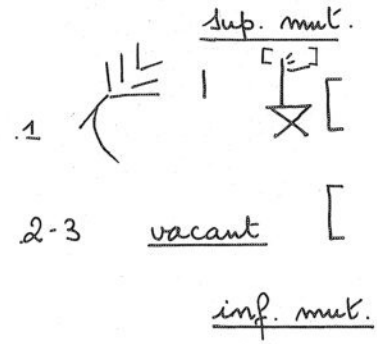 sup. mut.
.1 [
.2-3 vacant [
inf. mut.